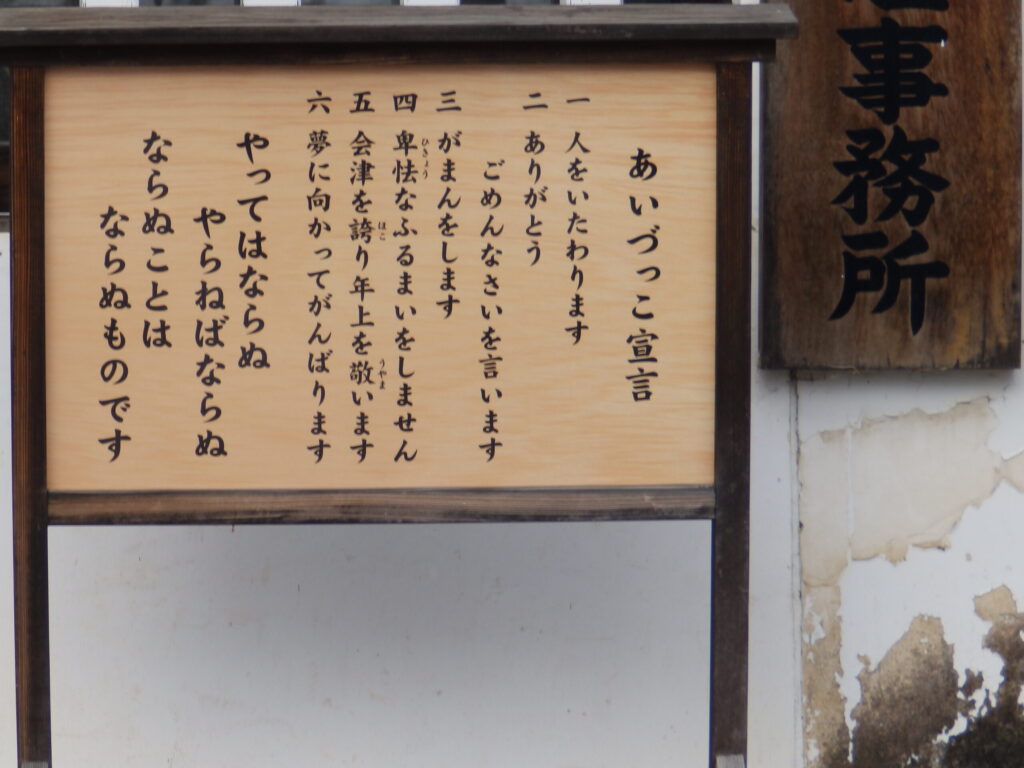 事務所
あいづっこ宣言
一 人をいたわります
二 ありがとう
ごめんなさいを言います
三 がまんをします
四 卑怯なふるまいをしません
ひきょう
五 会津を誇り年上を敬います
ほこ
うやま
六 夢に向かってがんばります
やってはならぬ
やらねばならぬ
ならぬことは
ならぬものです